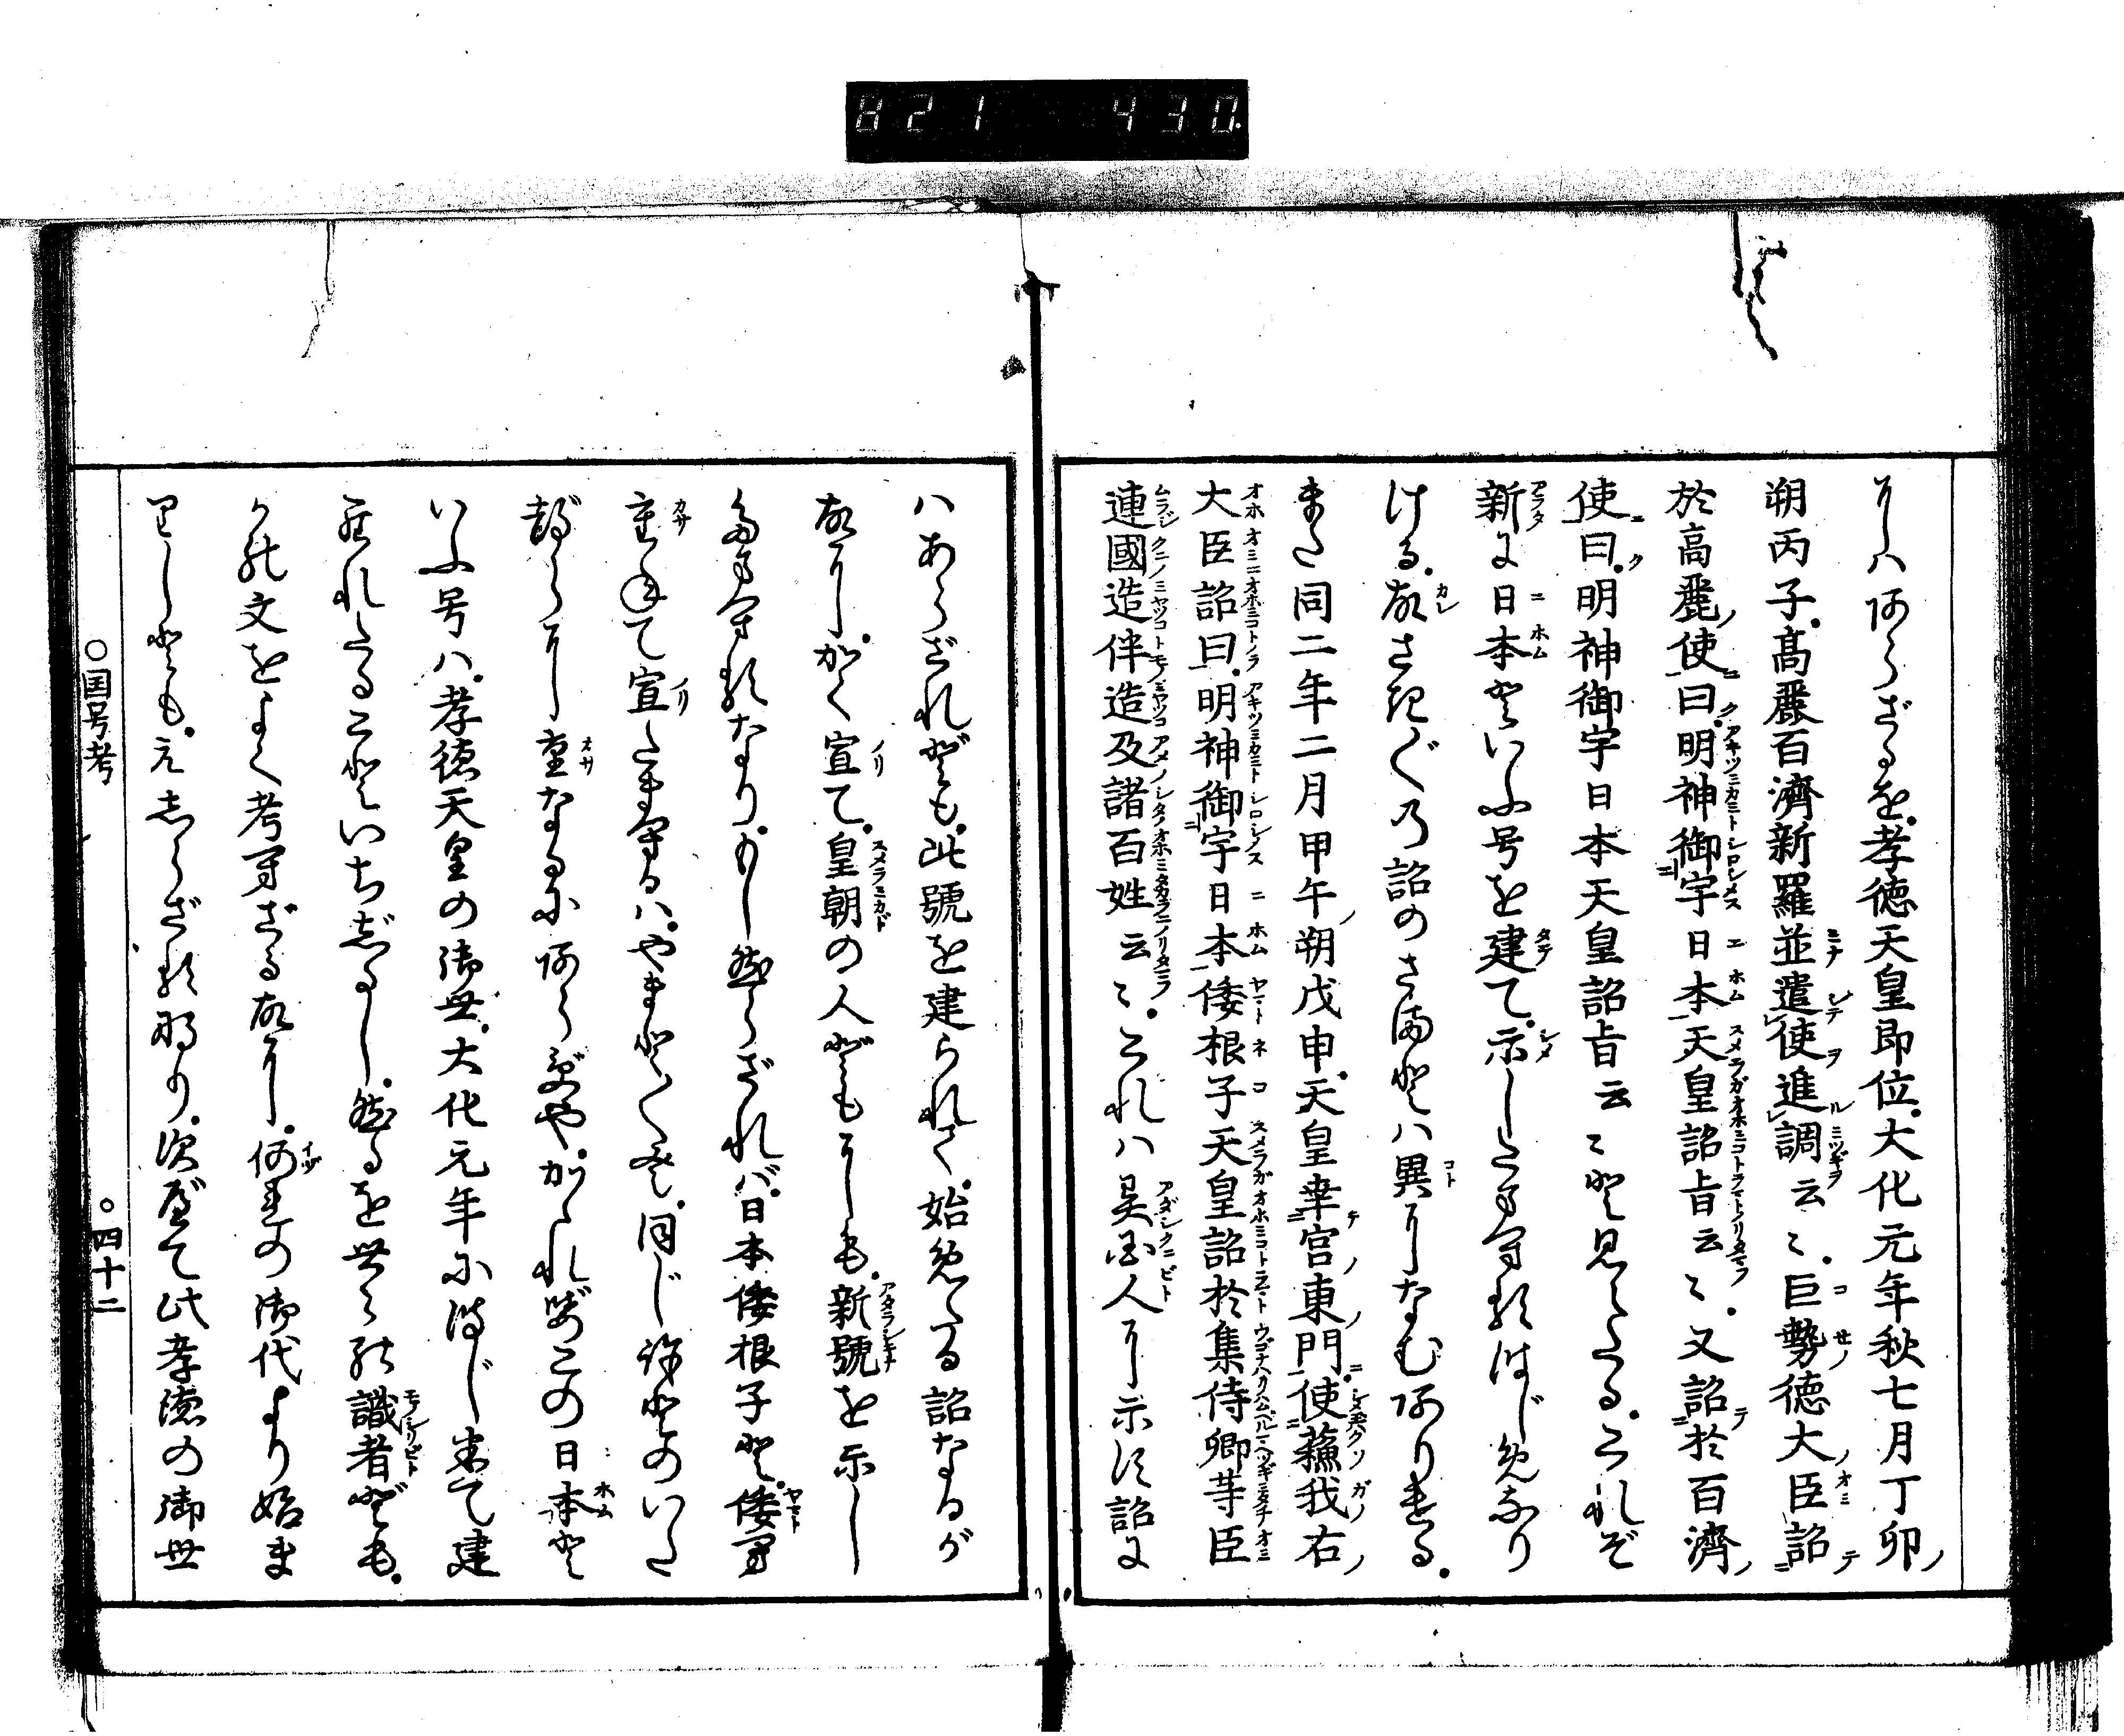 にハあらざるを、孝徳天皇即位、大化元年秋七月丁卯ノ
朔丙子、高麗百濟新羅並遣使進調云々、巨勢徳大臣詔
於高麗使曰、明神御宇日本天皇詔旨云々、又詔於百濟
使曰、明神御宇日本天皇詔旨云々と見えたる、これぞ
新に日本といふ号を建て、示したまへるはじめなり
ける、故さきざきの詔のさまとハ異になむありける、
また同二年二月甲午朔戊申、天皇幸宮東門、使蘓我右
大臣詔曰、明神御宇日本倭根子天皇詔於集侍卿等臣
連國造伴造及諸百姓云々、これハ異国人に示す詔に
ハあらざれども、此號を建られて、始めたる詔なるが
故に、かく宣て、皇朝の人どもにしも、新號を示し
たまへるなり、もし然らざれバ、日本倭根子と、倭を
重ねて宣たまへるハ、やまとやまとと、同じ詞のいた
づらに重なるにあらずや、かゝれバこの日本と
いふ号ハ、孝徳天皇の御世、大化元年にはじめて建
られたることいちじるし、然るを世々の識者ども、
かの文をよく考へざる故に、何れの御代より始ま
りしとも、えしらざるなり、次でに此孝徳の御世
○国号考
○四十二
821 430